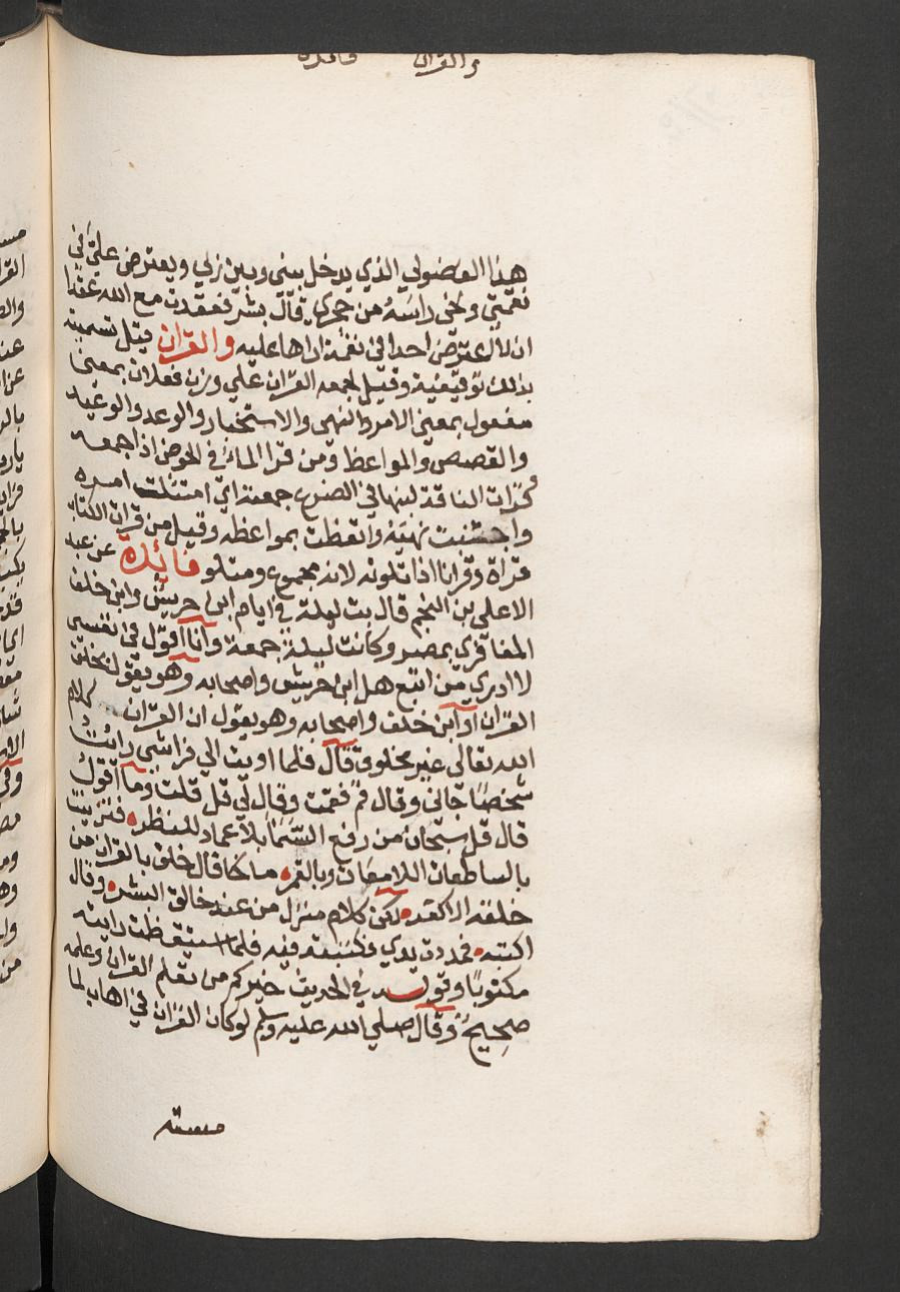 والقران فائدة
هذا الفضولي الذي يدخل بيني وبين زلي ويعترض علي في
نعمتي ونحى راسه من حجري قال بشر فعقدت مع الله عقدا
ان لا اعترض احدا في نعمة اراها عليه والقران قيل تسميته
بذلك توقيفية وقيل لجمعه القران علي وزن فعلان بمعني
مفعول بمعني الامر والنهي والاستخبار والوعد والوعيد
والقصص والمواعظ ومن قرا الماء في الحوض اذا جمعه
وقرات الناقة لبنها في الضرع جمعته اي امتثلت امره
واجتنبت نهيه واتعظت بمواعظه وقيل من قرات الكتاب
قراة وقرانا اذا تلوته لانه مجموع ومتلو فائدة عن عبد
الاعلي بن النجم قال بت ليلة في ايام ابن حريش وابن خلف
المعافري بمصر وكانت ليلة جمعة وانا اقول في نفسي
لا ادري من اتبع هل ابن حريش واصحابه وهو يقول بخلق
القران او ابن خلف واصحابه وهو يقول ان القران كلام
الله تعالي غير مخلوق قال فلما اويت الي فراشي رايت
شخصا جاني وقال قم فقمت وقال لي قل قلت وما اقول
قال قل سبحان من رفع السما بلا عماد للنظر فتزينت
بالساطعات اللامعات وبالقمر ما قال خلق بالقران من
خلقه الا كفر لكن كلام منزل من عند خالق البشر وقال
اكتبه فمددت يدي فكتبته فيه فلما استيقظت رايته
مكتوبا وقوله في الحديث خيركم من تعلم القران وعلمه
صحيح وقال صلي الله عليه وسلم لو كان القران في اهاب لما
مسته